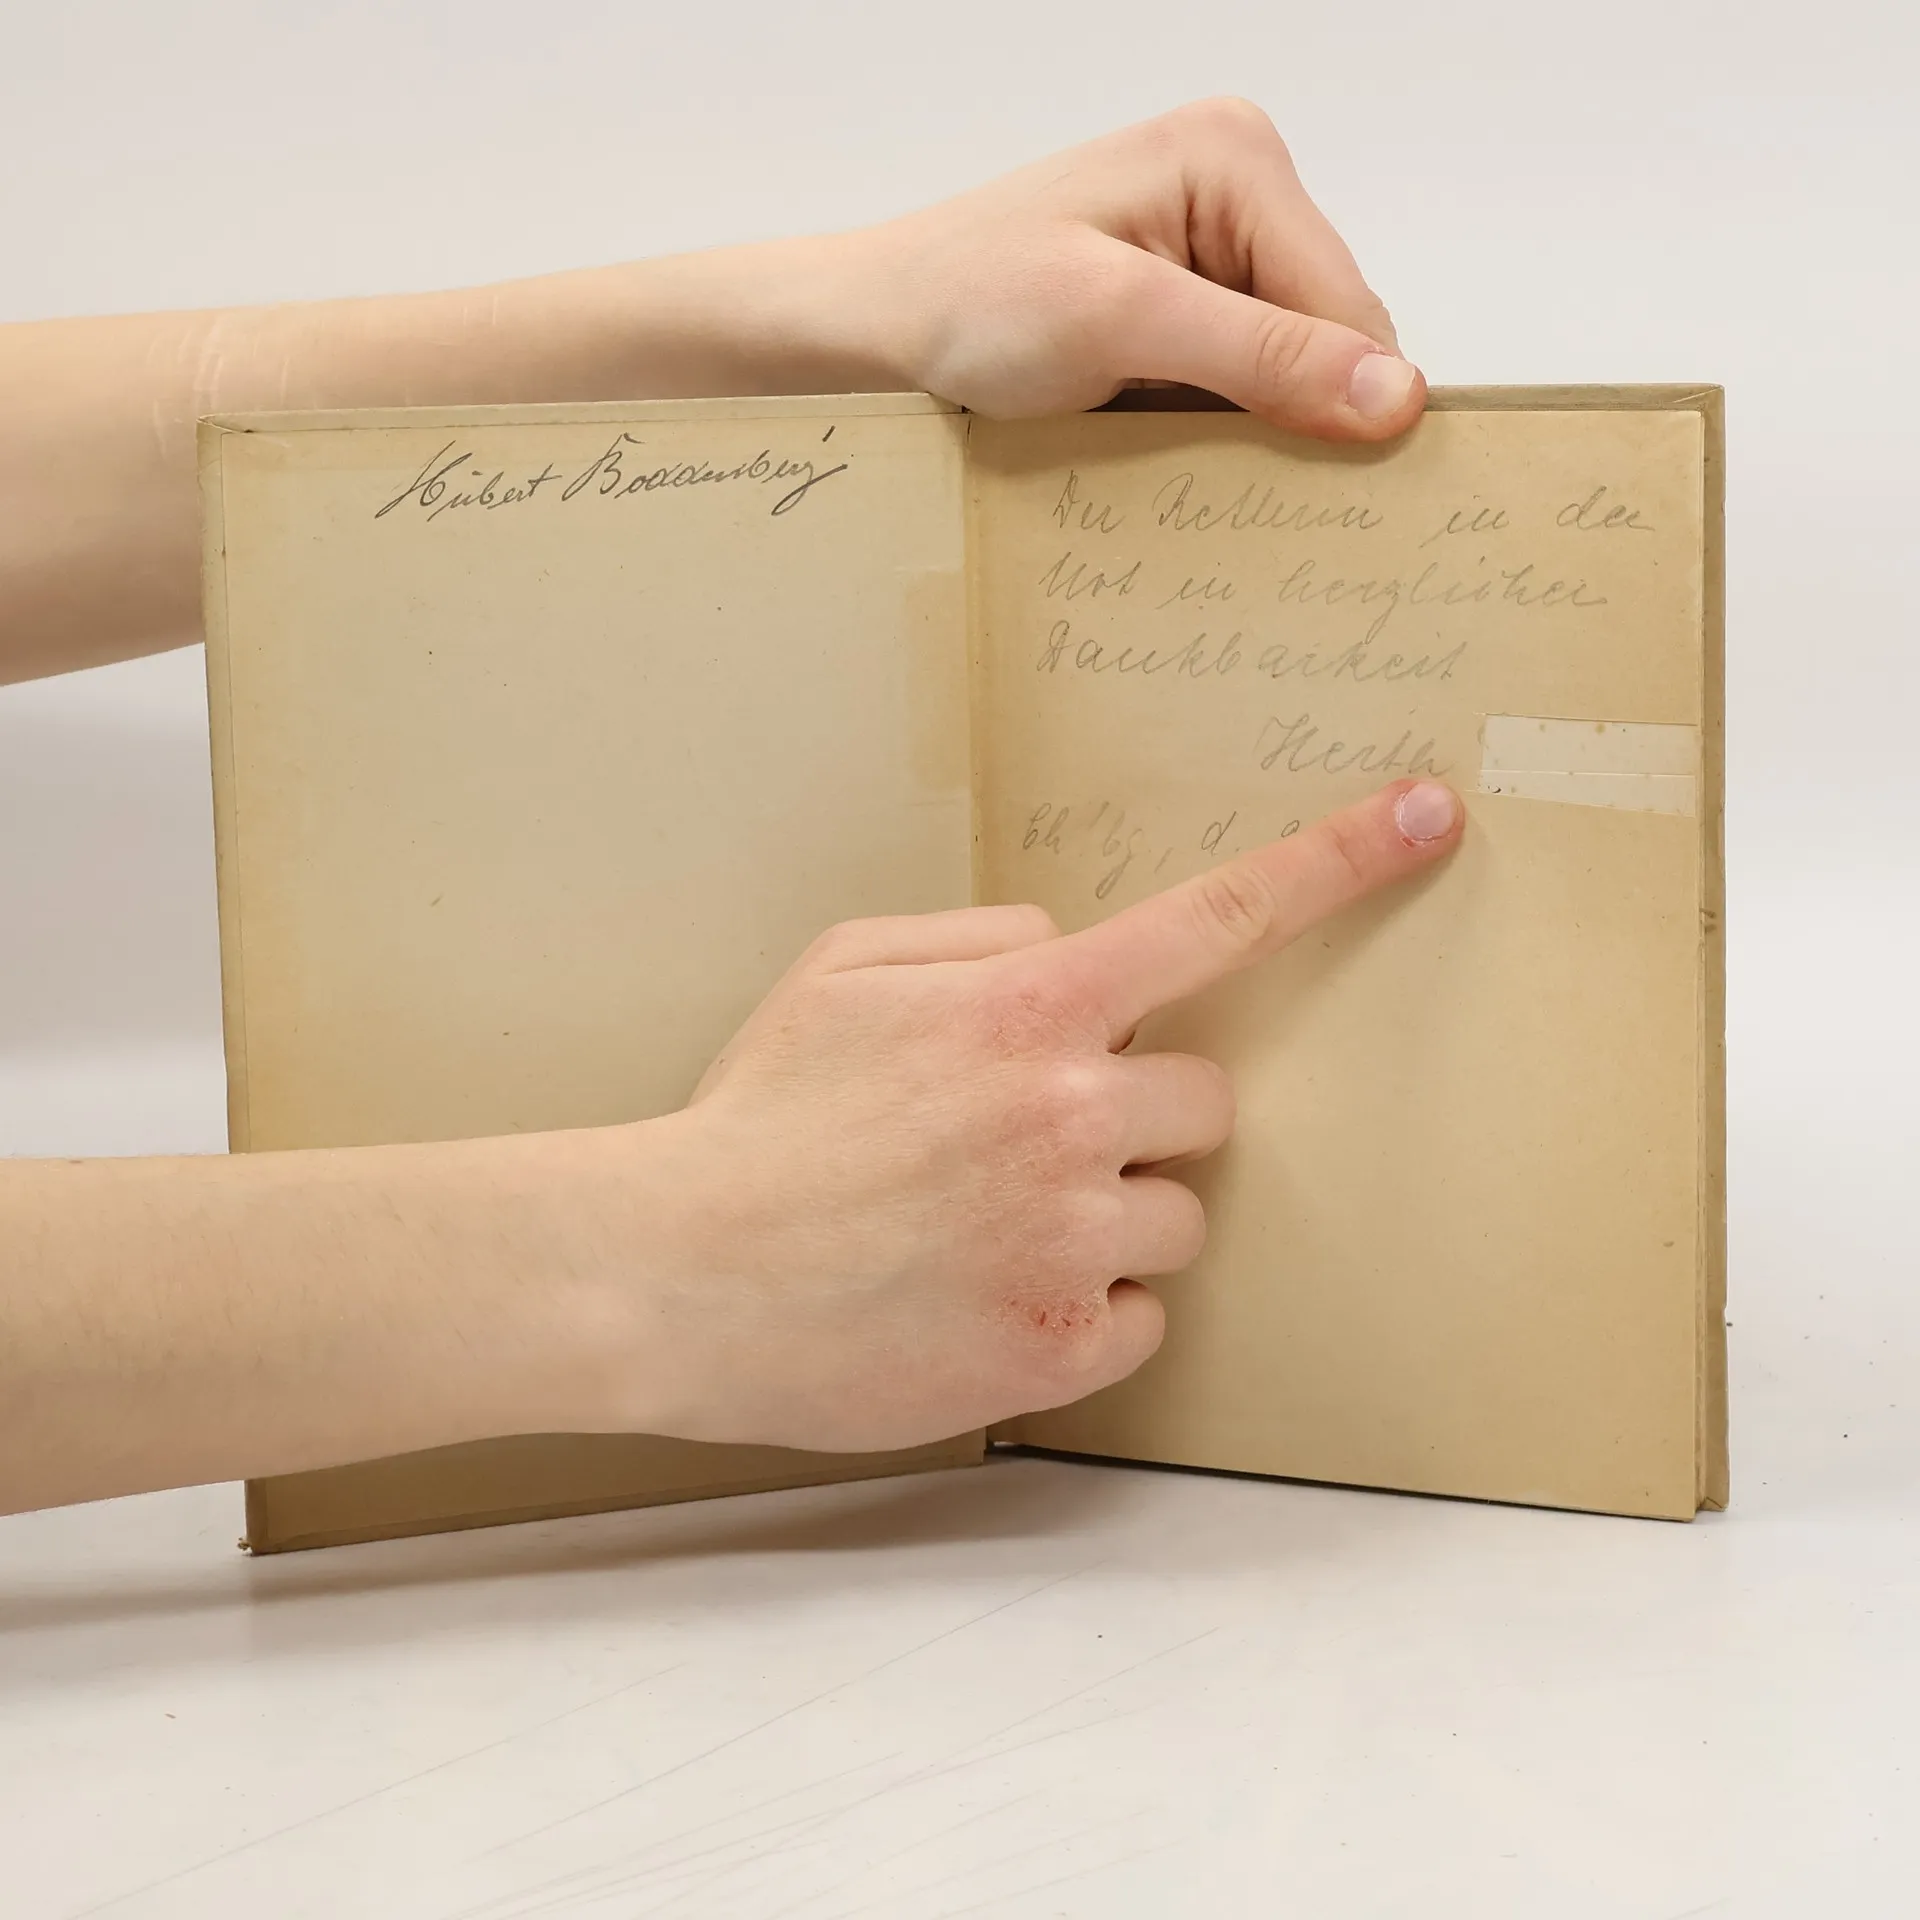 Hubert Boddenberg
Der Retterin in der
Not in herzlicher
Dankbarkeit
Herta
Ch'bg., d.